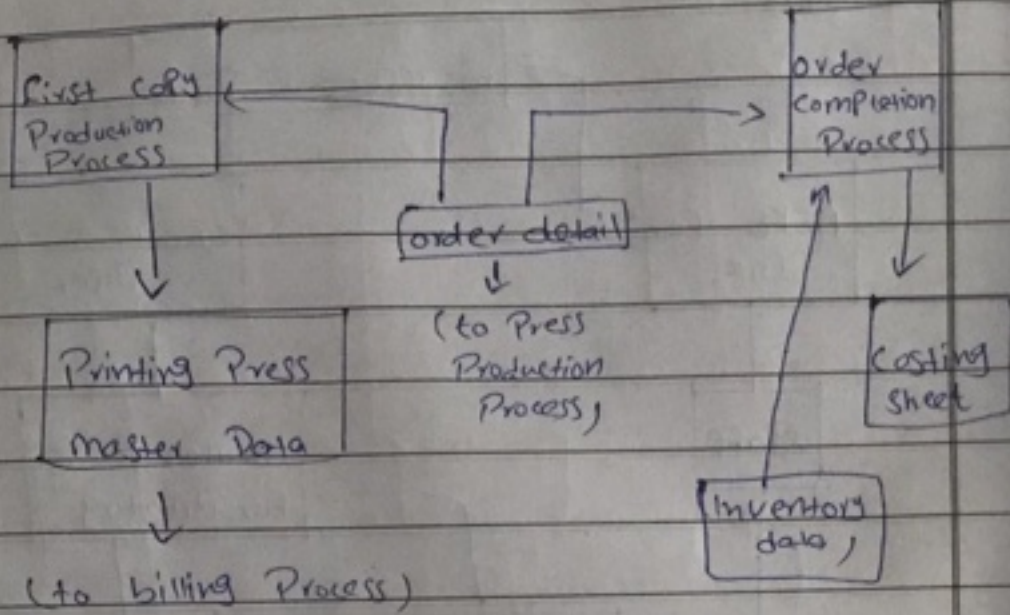 First Copy
Production
Process
order
Completion
Process
order detail
(to Press
Production
Process,
Printing Press
Master Data
Costing
Sheet
Inventory
data,
(to billing Process)